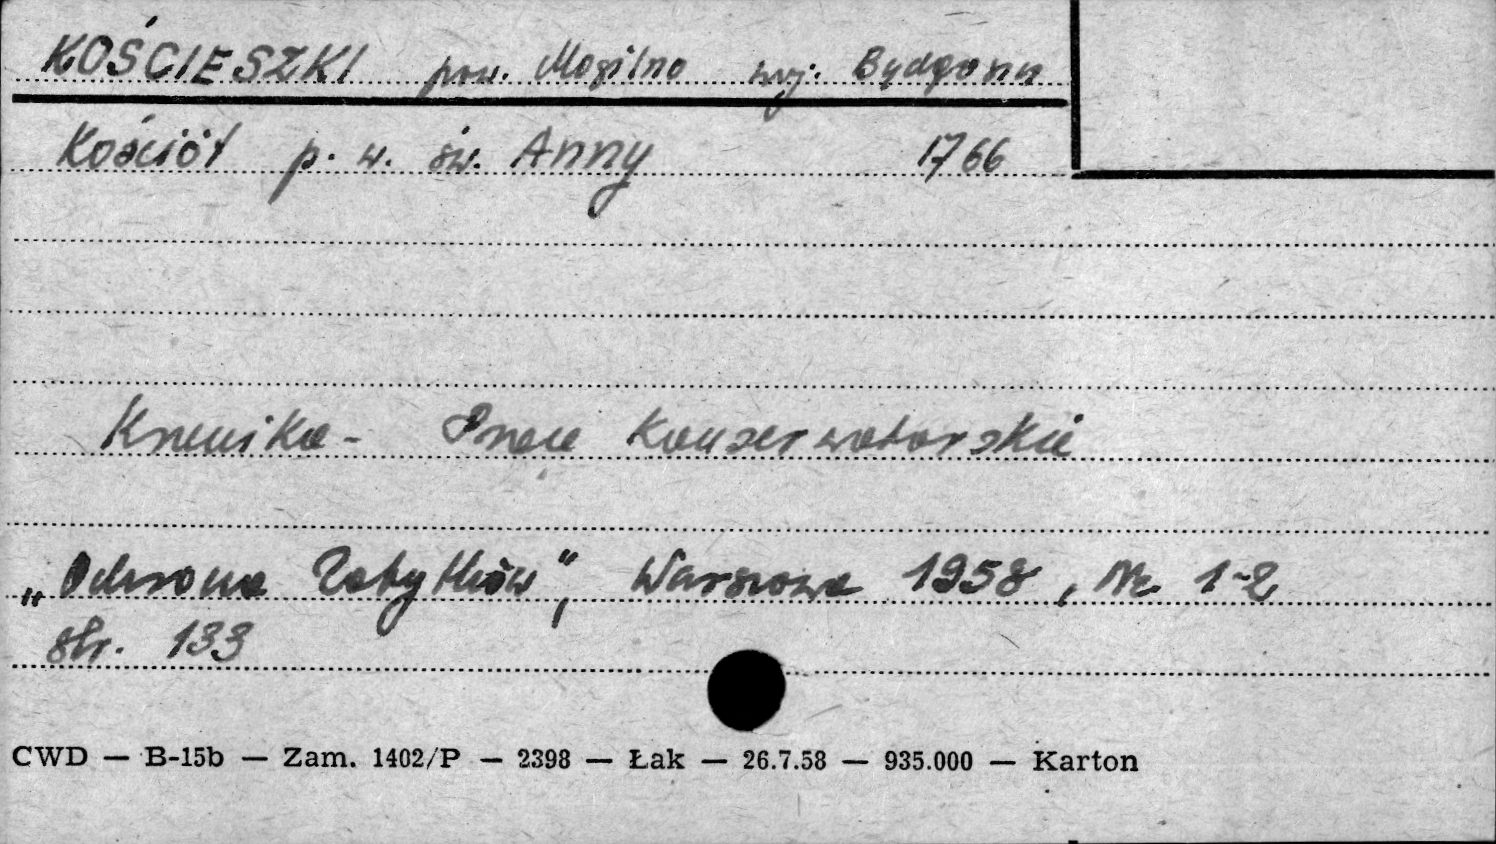 KOŚCIESZKI pow. Mogilno woj. Bydgoszcz
Kościół p. w. św. Anny 1766
Kronika - Prace konserwatorskie
„Ochrona Zabytków", Warszawa 1958, Nr. 1-2
str. 133
CWD — B-15b — Zam. 1402/P — 2398 — Łak — 26.7.58 — 935.000 — Karton